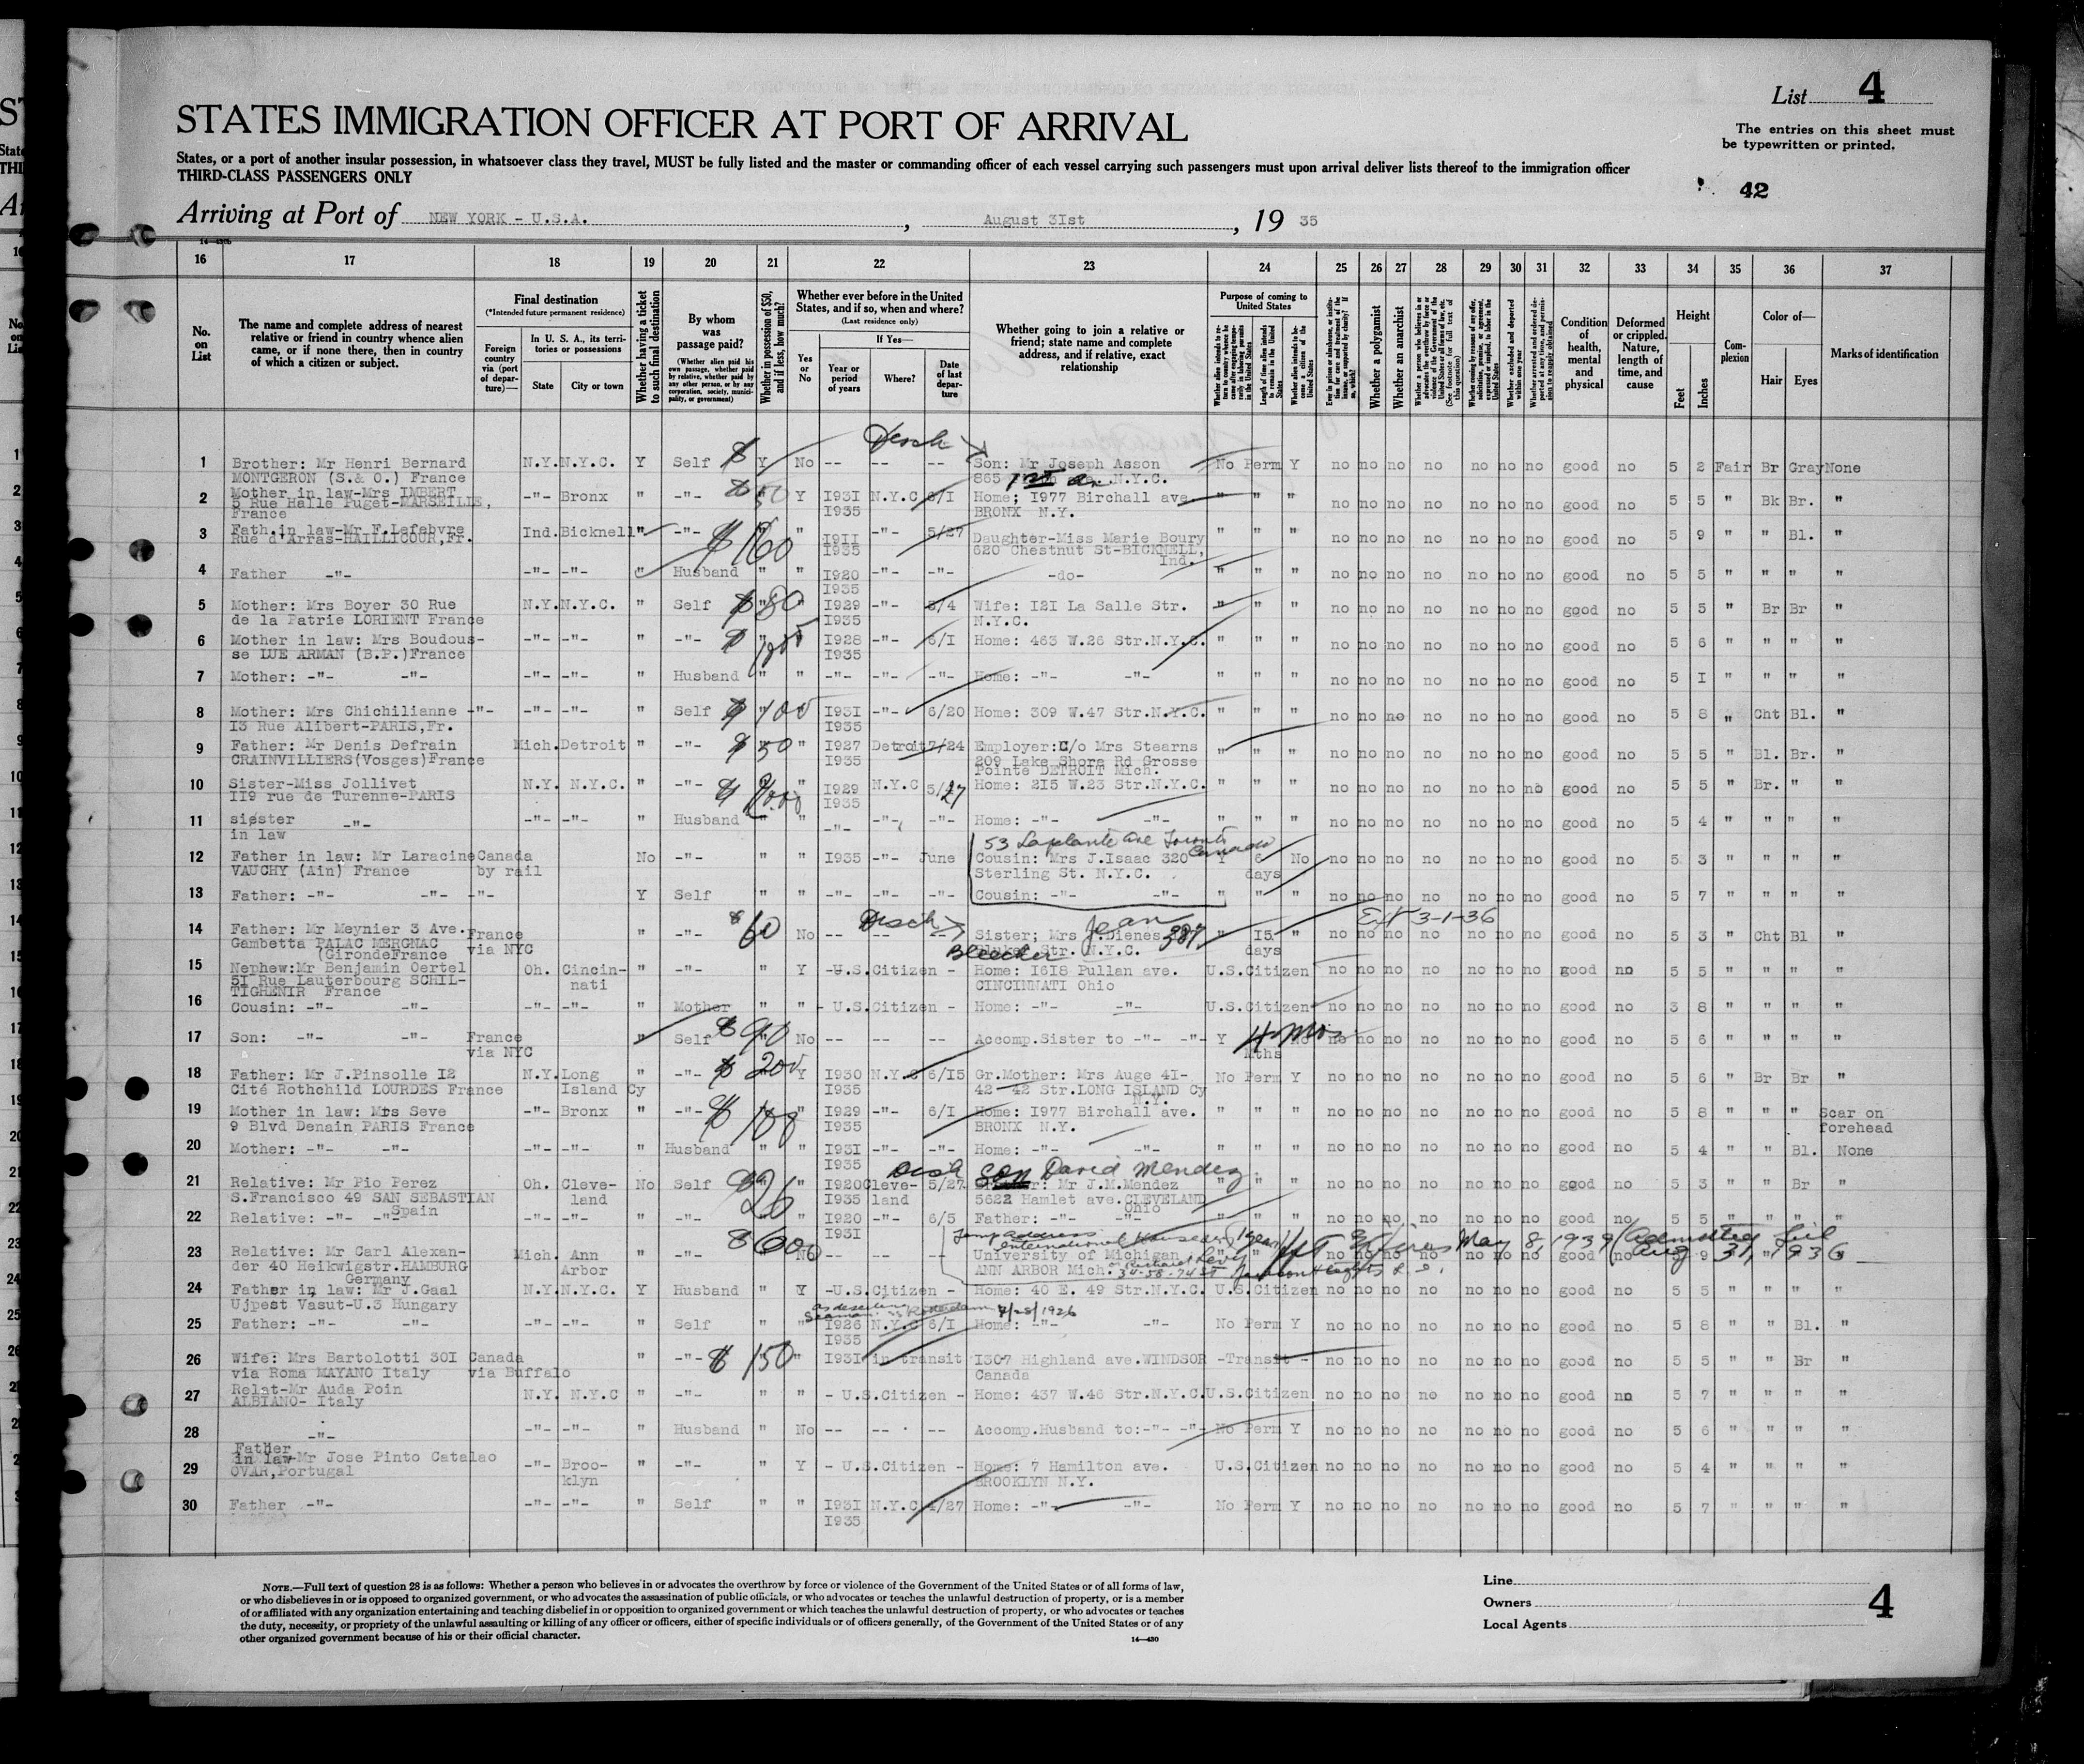 List 4
STATES IMMIGRATION OFFICER AT PORT OF ARRIVAL
The entries on this sheet must
be typewritten or printed.
States, or a port of another insular possession, in whatsoever class they travel, MUST be fully listed and the master or commanding officer of each vessel carrying such passengers must upon arrival deliver lists thereof to the immigration officer
THIRD-CLASS PASSENGERS ONLY
42
Arriving at Port of NEW YORK - U.S.A. , August 31st , 19 35
16 17 18 19 20 21 22 23 24 25 26 27 28 29 30 31 32 33 34 35 36 37
No. on List
The name and complete address of nearest relative or friend in country whence alien came, or if none there, then in country of which a citizen or subject.
Final destination
(*Intended future permanent residence)
Foreign country via (port of departure)—
In U. S. A., its territories or possessions
State
City or town
Whether having a ticket to such final destination
By whom was passage paid?
(Whether alien paid his own passage, whether paid by relative, whether paid by any other person, or by any corporation, society, municipality, or government)
Whether in possession of $50, and if less, how much?
Whether ever before in the United States, and if so, when and where?
(Last residence only)
Yes or No
If Yes—
Year or period of years
Where?
Date of last departure
Whether going to join a relative or friend; state name and complete address, and if relative, exact relationship
Purpose of coming to United States
Whether a polygamist
Whether an anarchist
Condition of health, mental and physical
Deformed or crippled. Nature, length of time, and cause
Height
Feet
Inches
Complexion
Color of—
Hair
Eyes
Marks of identification
1 Brother: Mr Henri Bernard N.Y. N.Y.C. Y Self $ Y No -- -- -- Son: Mr Joseph Asson No Perm Y no no no no no no no good no 5 2 Fair Br Gray None
MONTGERON (S.& O.) France 865 N.Y.C.
2 Mother in law-Mrs IMBERT -"- Bronx " -"- Y I931 N.Y.C 6/I Home; I977 Birchall ave. " " " no no no no no no no good no 5 5 " Bk Br. "
5 Rue Halle Puget-MARSEILLE, I935 BRONX N.Y.
France
3 Fath.in law-Mr F.Lefebvre Ind. Bicknell " -"- $160 " I9II -"- 5/27 Daughter-Miss Marie Boury " " " no no no no no no no good no 5 9 " " Bl. "
Rue d'Arras-HAILLICOUR,Fr. I935 620 Chestnut St-BICKNELL,
Ind.
4 Father -"- -"- -"- " Husband " " I920 -"- -"- -do- " " " no no no no no no no good no 5 5 " " " "
I935
5 Mother: Mrs Boyer 30 Rue N.Y. N.Y.C. " Self $80 " I929 -"- 8/4 Wife: I2I La Salle Str. " " " no no no no no no no good no 5 5 " Br Br "
de la Patrie LORIENT France I935 N.Y.C.
6 Mother in law: Mrs Boudous- -"- -"- " -"- $ " I928 -"- 6/I Home: 463 W.26 Str.N.Y.C. " " " no no no no no no no good no 5 6 " " " "
se LUE ARMAN (B.P.)France I935
7 Mother: -"- -"- -"- -"- " Husband " " -"- -"- -"- Home: -"- -"- " " " no no no no no no no good no 5 I " " " "
8 Mother: Mrs Chichilianne -"- -"- -"- " Self $100 I93I -"- 6/20 Home: 309 W.47 Str.N.Y.C. " " " no no no no no no no good no 5 8 " Cht Bl. "
I3 Rue Alibert-PARIS,Fr. I935
9 Father: Mr Denis Defrain Mich. Detroit " -"- $50 " I927 Detroit 7/24 Employer:C/o Mrs Stearns " " " no no no no no no no good no 5 5 " Bl. Br. "
CRAINVILLIERS(Vosges)France I935 209 Lake Shore Rd Grosse
Pointe DETROIT Mich.
10 Sister-Miss Jollivet N.Y. N.Y.C. " -"- $ " I929 N.Y.C 5/27 Home: 2I5 W.23 Str.N.Y.C. " " " no no no no no no no good no 5 5 " Br. " "
II9 rue de Turenne-PARIS I935
11 sister -"- -"- -"- " Husband " " -"- -"- -"- Home: -"- -"- " " " no no no no no no no good no 5 4 " " " "
in law
53 Laplante Ave Toronto
Canada
12 Father in law: Mr Laracine Canada No -"- " " I935 -"- June Cousin: Mrs J.Isaac 320 Y 6 No no no no no no no no good no 5 3 " " " "
VAUCHY (Ain) France by rail Sterling St. N.Y.C. days
13 Father: -"- -"- -"- Y Self " " -"- -"- -"- Cousin: -"- -"- " " " no no no no no no no good no 5 7 " " " "
Ext 3-1-36
14 Father: Mr Meynier 3 Ave. France " -"- $60 No -- -- -- Sister; Mrs Jean Dienes 387 " I5 " no no no no no no no good no 5 3 " Cht Bl "
Gambetta PALAC MERGNAC via NYC Bleecker Str. N.Y.C. days
(GirondeFrance
15 Nephew:Mr Benjamin Oertel Oh. Cincin- " -"- " Y -U.S.Citizen - Home: I6I8 Pullan ave. U.S.Citizen no no no no no no no good no 5 5 " " " "
5I Rue Lauterbourg SCHIL- nati CINCINNATI Ohio
TIGHENIR France
16 Cousin: -"- -"- -"- -"- " Mother " " - U.S.Citizen - Home: -"- -"- U.S.Citizen no no no no no no no good no 3 8 " " " "
17 Son: -"- -"- France " Self $90 No -- -- -- Accomp.Sister to -"- -"- Y 4 Mos no no no no no no no good no 5 6 " " " "
via NYC Mths
18 Father: Mr J.Pinsolle I2 N.Y. Long " -"- $200 Y I930 N.Y.C 6/I5 Gr.Mother: Mrs Auge 4I- No Perm Y no no no no no no no good no 5 6 " Br Br "
Cité Rothchild LOURDES France Island Cy I935 42- 42 Str.LONG ISLAND Cy
N.Y.
19 Mother in law: Mrs Seve -"- Bronx " -"- $ " I929 -"- 6/I Home: I977 Birchall ave. " " " no no no no no no no good no 5 8 " " " Scar on
9 Blvd Denain PARIS France I935 BRONX N.Y. forehead
20 Mother: -"- -"- -"- -"- " Husband " " I93I -"- -"- Home: -"- -"- " " " no no no no no no no good no 5 4 " " Bl. None
I935
Son David Mendez
21 Relative: Mr Pio Perez Oh. Cleve- No Self $26 " I920 Cleve- 5/27 Mr J.M.Mendez " " " no no no no no no no good no 5 3 " " Br "
S.Francisco 49 SAN SEBASTIAN land I935 land 5622 Hamlet ave.CLEVELAND
Spain Ohio
22 Relative: -"- -"- -"- -"- " -"- " " I920 -"- 6/5 Father: -"- -"- " " " no no no no no no no good no 5 5 " " " "
I93I
Temp address
International House 1 year Expires May 8, 1939 (Admitted till
Aug 31, 1936
23 Relative: Mr Carl Alexan- Mich. Ann " -"- $600 No -- -- -- University of Michigan " " no no no no no no no good no 5 9 " " " "
der 40 Heikwigstr.HAMBURG Arbor ANN ARBOR Mich. 34-58-74 St Jackson Heights L.I.
Germany
24 Father in law: Mr J.Gaal N.Y. N.Y.C. Y Husband " Y -U.S.Citizen - Home: 40 E. 49 Str.N.Y.C. U.S.Citizen no no no no no no no good no 5 5 " " " "
Ujpest Vasut-U.3 Hungary
as deserting
Seaman Rotterdam 7/28/1926
25 Father: -"- -"- -"- -"- " Self " " I926 N.Y.C 6/I Home: -"- -"- No Perm Y no no no no no no no good no 5 8 " " Bl. "
I935
26 Wife: Mrs Bartolotti 30I Canada " -"- $150 " I93I in transit I307 Highland ave.WINDSOR -Transit - no no no no no no no good no 5 5 " " Br "
via Roma MAYANO Italy via Buffalo Canada
27 Relat-Mr Auda Poin N.Y. N.Y.C " -"- " " - U.S.Citizen - Home: 437 W.46 Str.N.Y.C. U.S.Citizen no no no no no no no good no 5 7 " " " "
ALBIANO- Italy
28 -"- -"- -"- " Husband " No -- -- -- Accomp.Husband to:-"- -"- No Perm Y no no no no no no no good no 5 6 " " " "
29 Father
in law-Mr Jose Pinto Catalao -"- Broo- " -"- " Y - U.S.Citizen - Home: 7 Hamilton ave. U.S.Citizen no no no no no no no good no 5 4 " " " "
OVAR,Portugal klyn BROOKLYN N.Y.
30 Father -"- -"- -"- " Self " " I93I N.Y.C 4/27 Home: -"- -"- No Perm Y no no no no no no no good no 5 7 " " " "
I935
NOTE.—Full text of question 28 is as follows: Whether a person who believes in or advocates the overthrow by force or violence of the Government of the United States or of all forms of law,
or who disbelieves in or is opposed to organized government, or who advocates the assassination of public officials, or who advocates or teaches the unlawful destruction of property, or is a member
of or affiliated with any organization entertaining and teaching disbelief in or opposition to organized government or which teaches the unlawful destruction of property, or who advocates or teaches
the duty, necessity, or propriety of the unlawful assaulting or killing of any officer or officers, either of specific individuals or of officers generally, of the Government of the United States or of any
other organized government because of his or their official character.
14—430
Line
Owners
Local Agents
4